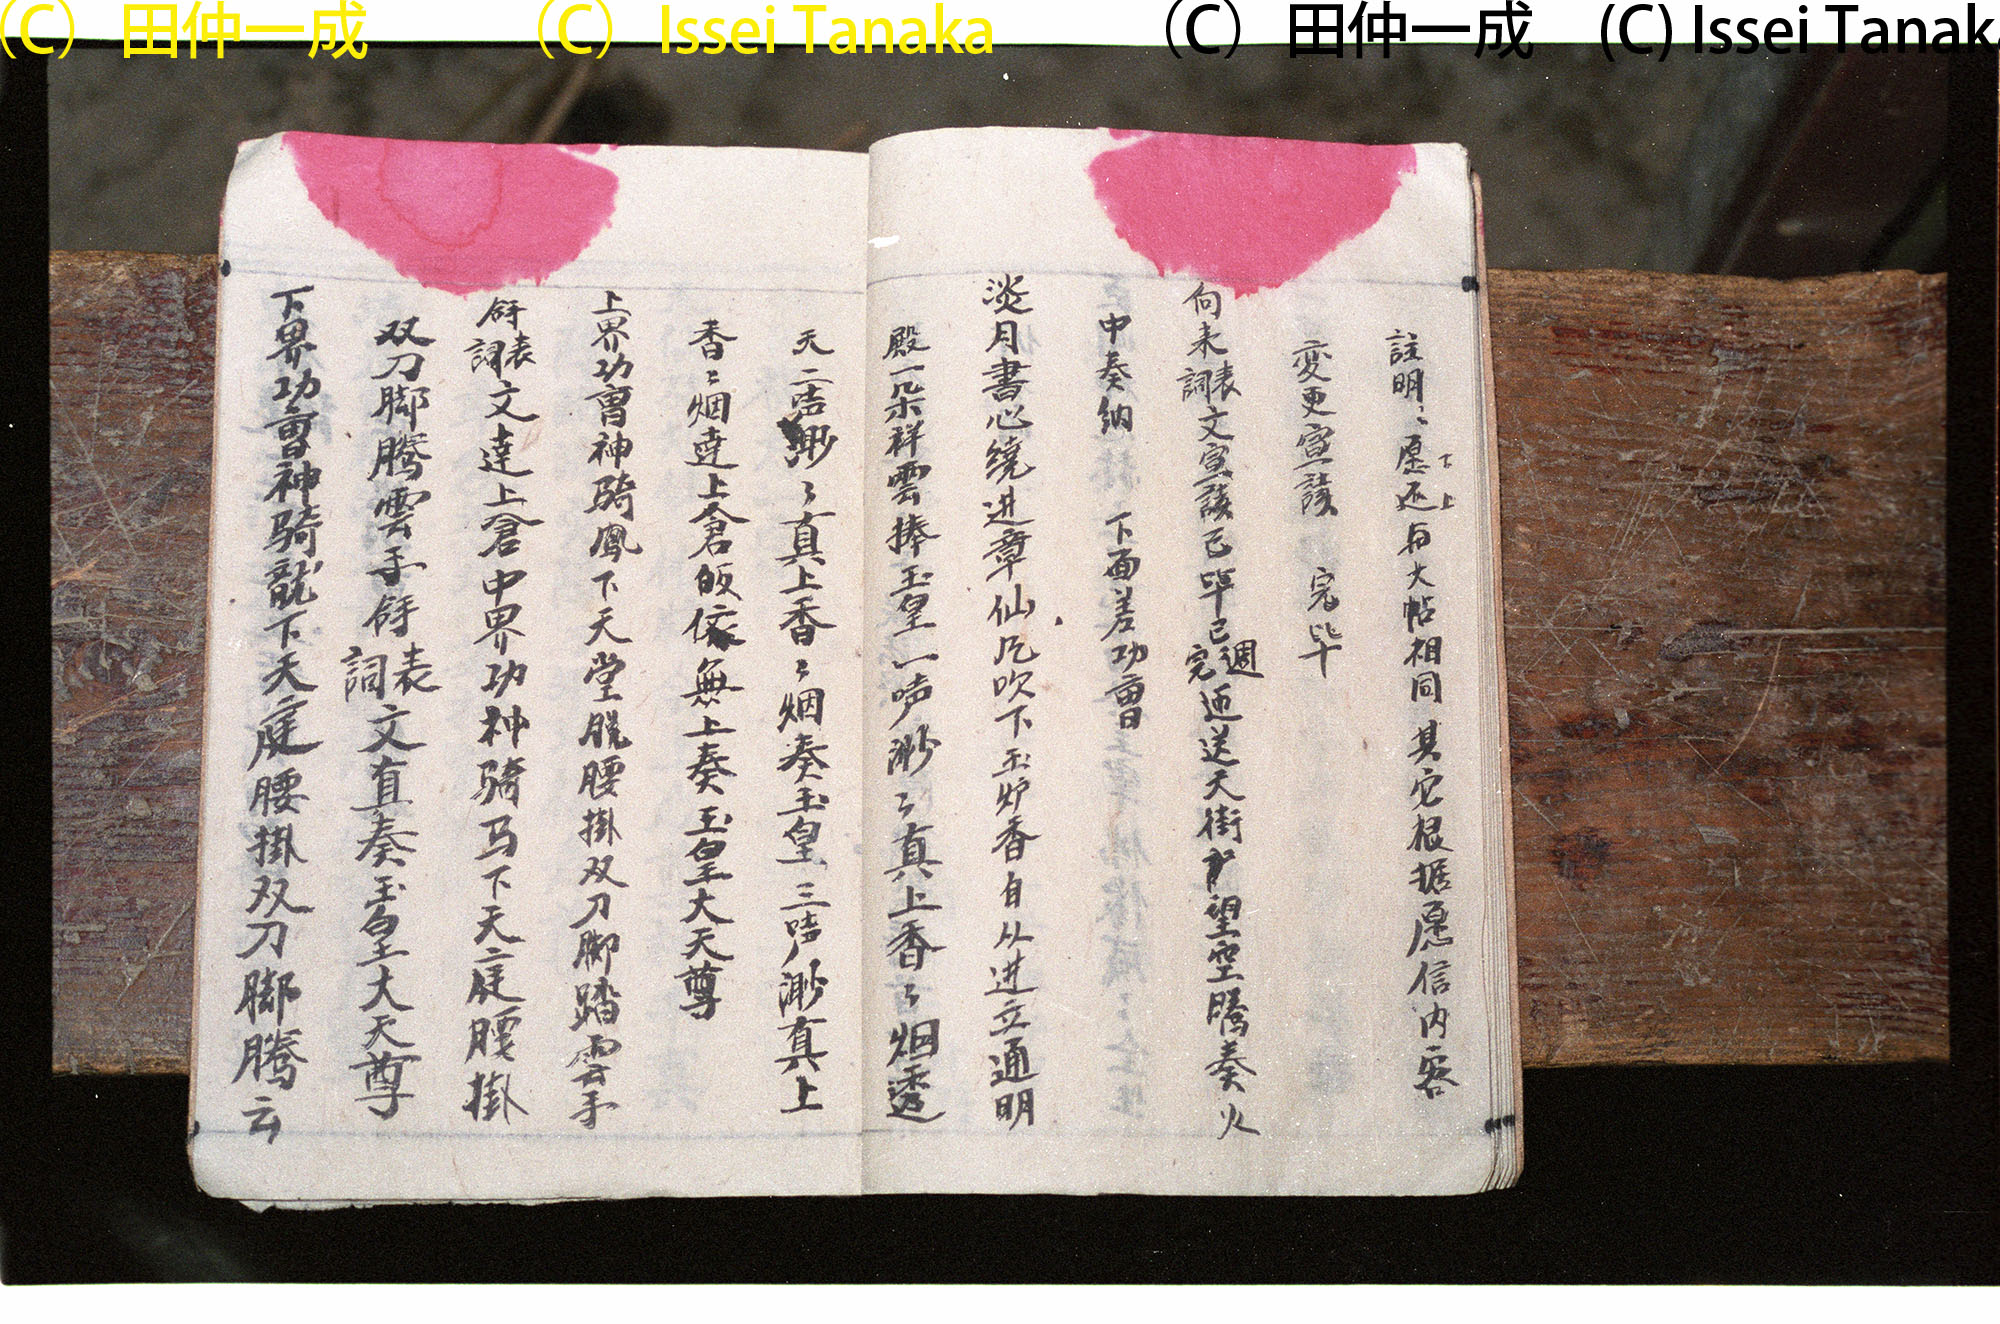 (C) 田仲一成 (C) Issei Tanaka (C) 田仲一成 (C) Issei Tanaka
註明〻愿还与大帖相同 其它根据愿信内容
下上
变更宣讀 完毕
向来表詞文宣讀已毕已週完迊送天街户望空腾奏火
中奏纳 下面差功曹
淡月書心繞进章仙风吹下玉炉香自从进立通明
殿一朵祥雲捧玉皇一声渺〻真上香〻烟透
天二声渺〻真上香〻烟奏玉皇三声渺真上
香〻烟達上倉皈依無上奏玉皇大天尊
上界功曹神骑鳳下天堂脱腰掛双刀脚踏雲手
表詞文達上倉中界功神骑马下天庭腰掛
双刀脚腾雲手表詞文直奏玉皇大天尊
下界功曹神骑龍下天庭腰掛双刀脚腾云